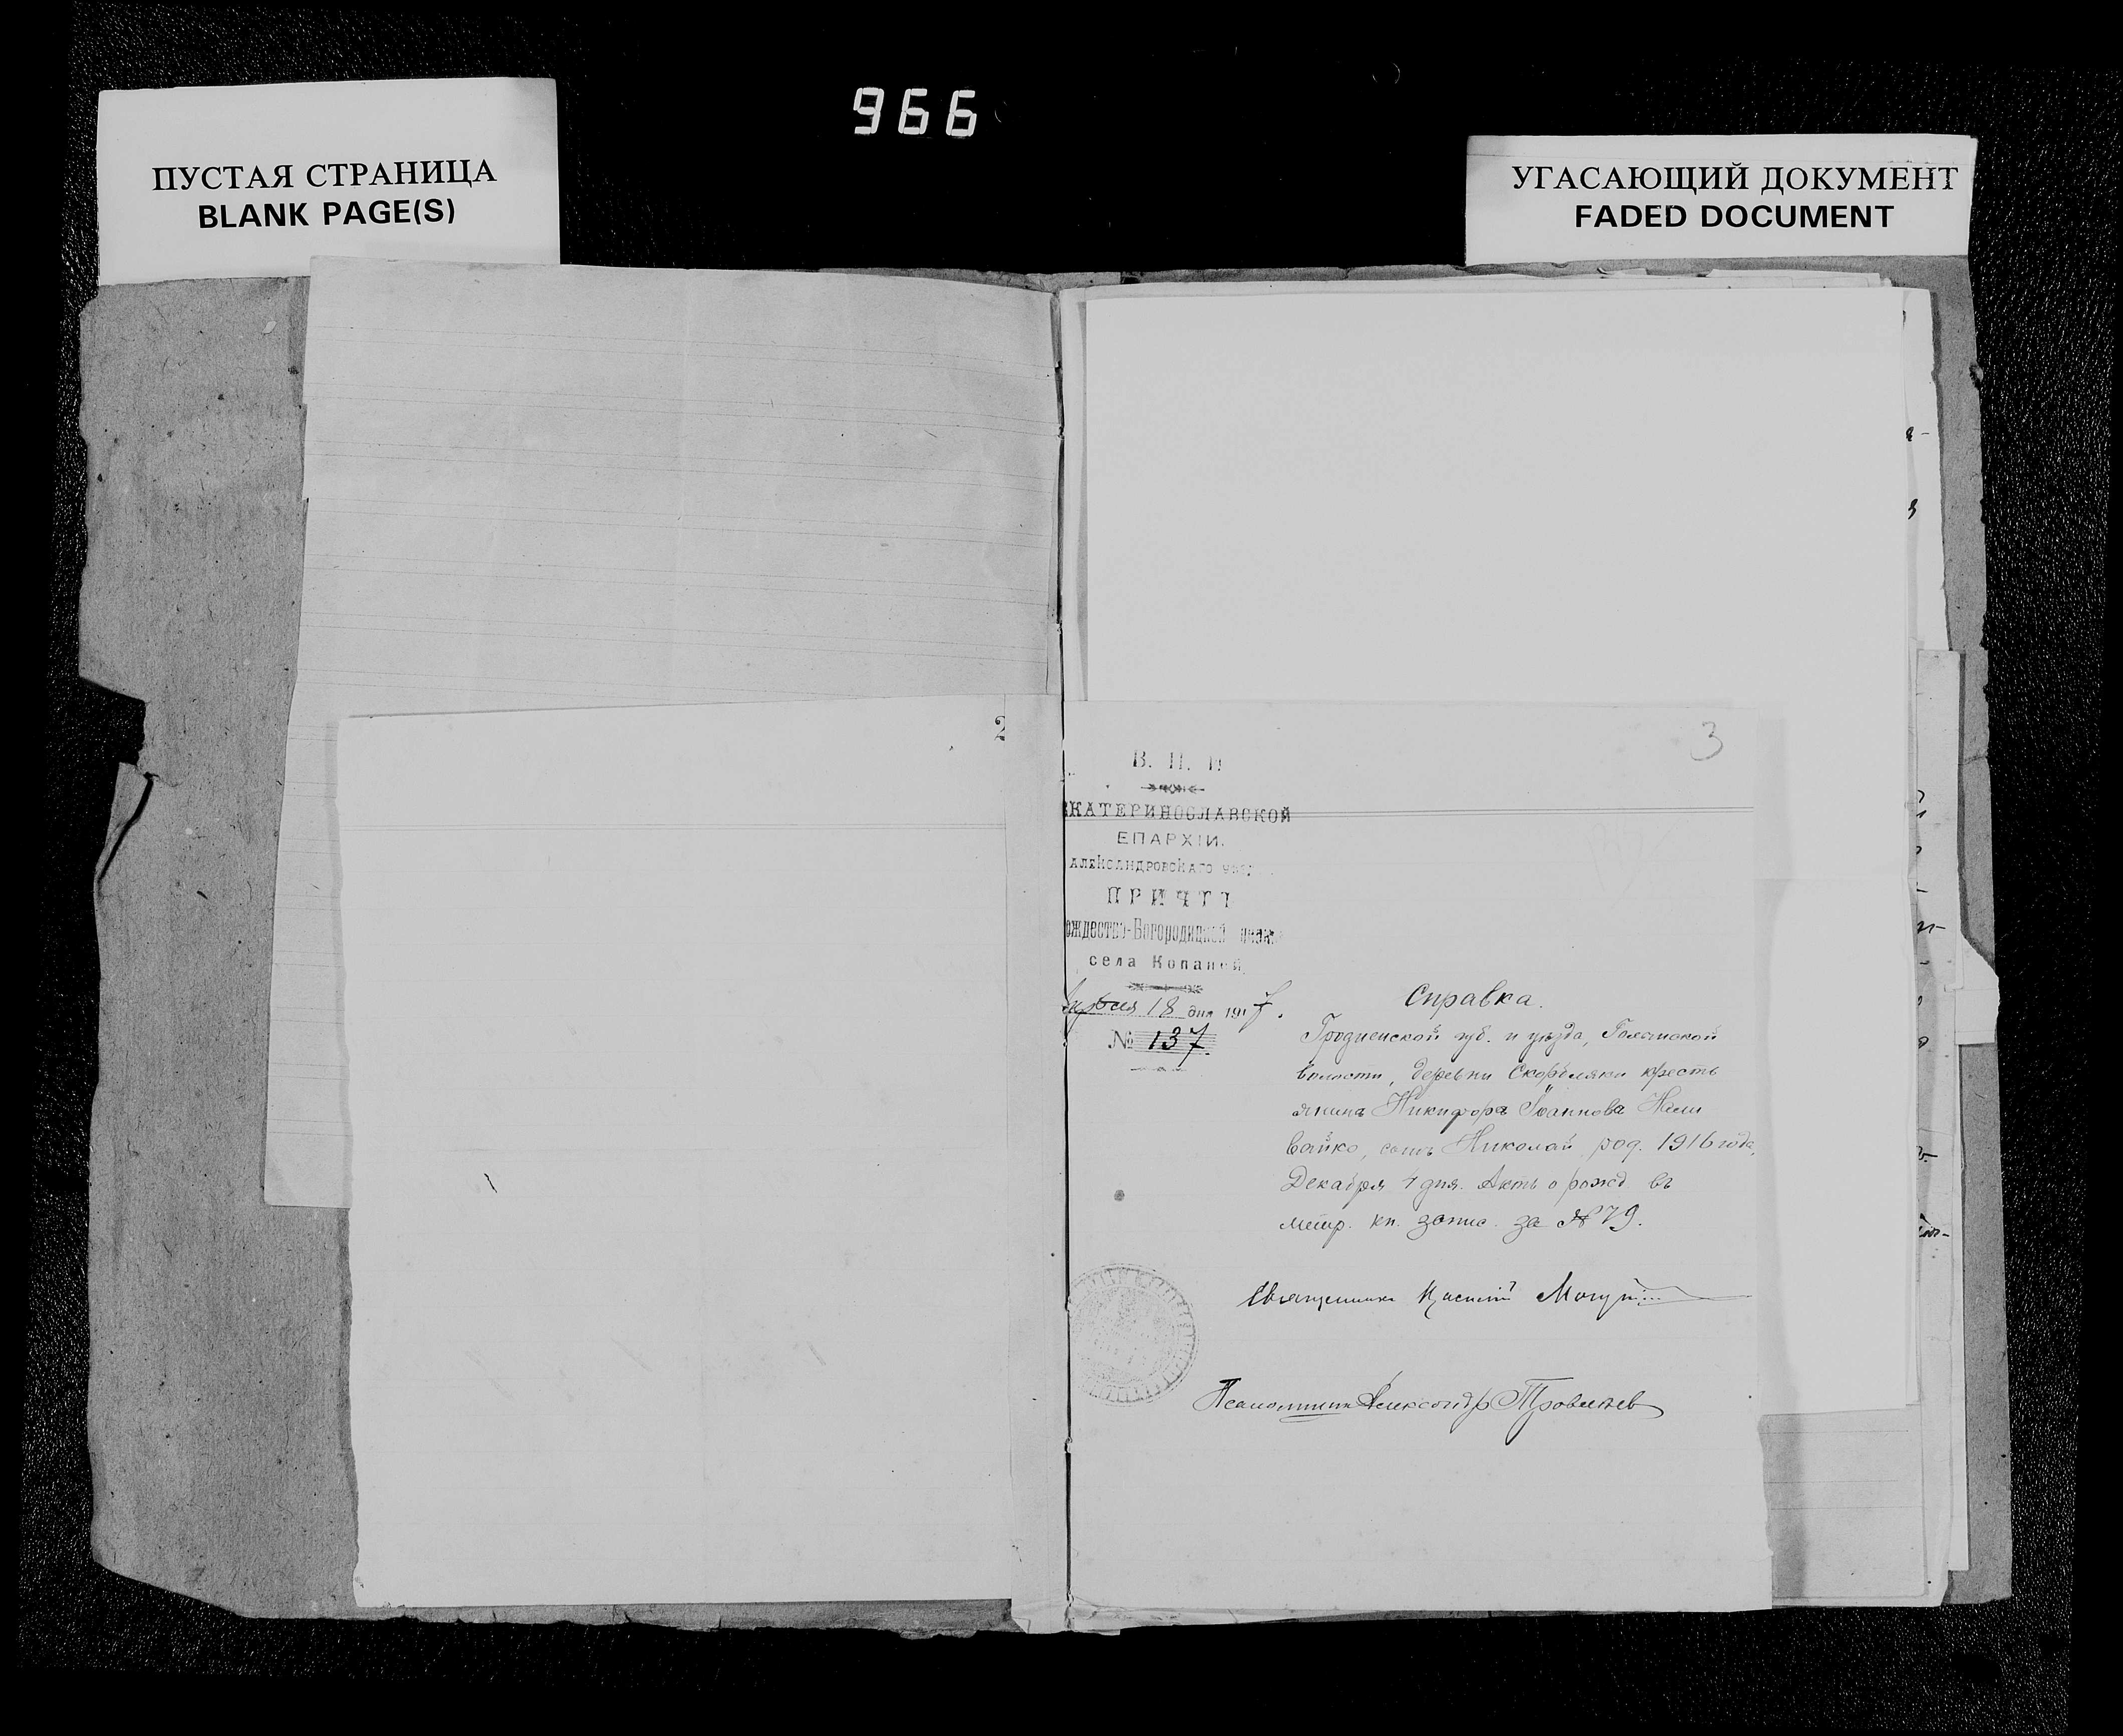 966
ПУСТАЯ СТРАНИЦА
BLANK PAGE(S)
УГАСАЮЩИЙ ДОКУМЕНТ
FADED DOCUMENT
2
3
В. П. И
ЕКАТЕРИНОСЛАВСКОЙ
ЕПАРХІИ.
АЛЕКСАНДРОВСКАГО
ПРИЧТЪ
ождество-Богородицкой
села Копаней
18 дня 1917.
№ 137.
Справка.
Гродненской губ. и уѣзда,
волости, деревни кресть
янина Никифора Іоаннова Нали
вайко, сынъ Николай род. 1916 года,
Декабря 4 дня. Актъ о рожд въ
метр. кн. запис. за № 79.
Священникъ
Псаломщикъ Александръ